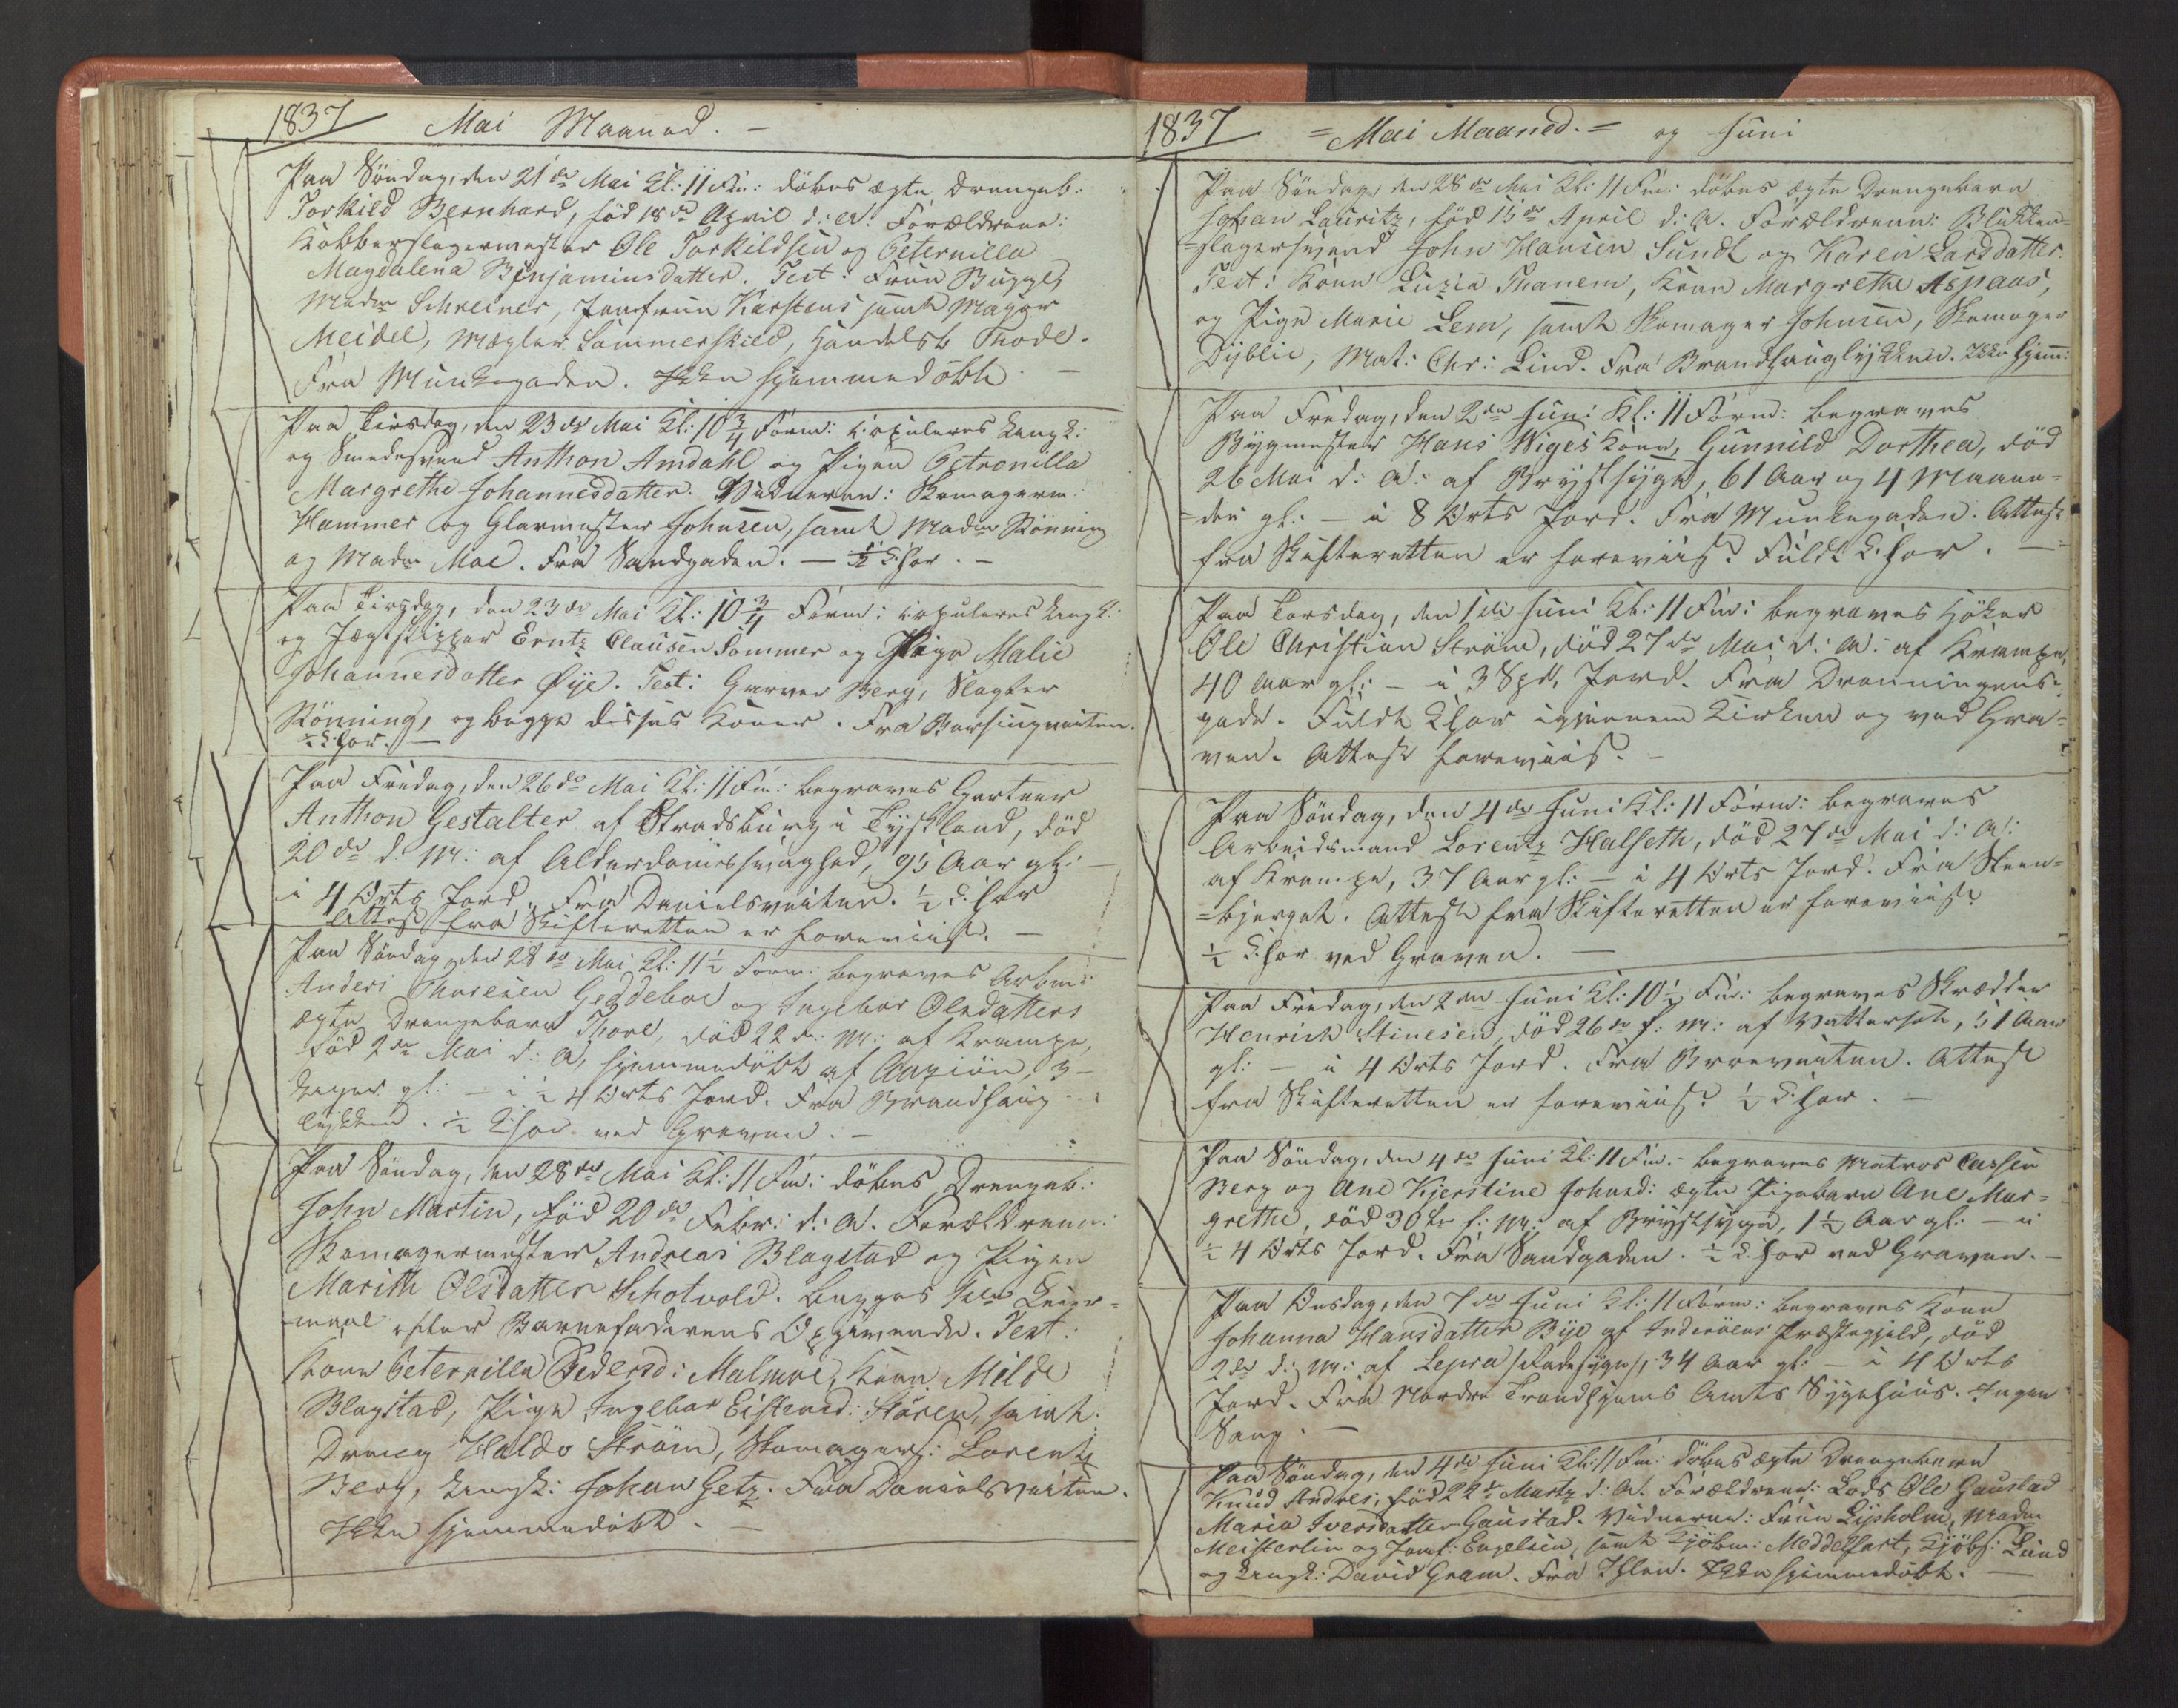 1837 Mai Maaned. –
Paa Söndag, den 21de Mai Kl: 11 Fm: döbes ægte Drengeb:
Torkild Bernhard, föd 18de April d: A. Forældrene:
Kobberslagermester Ole Torkildsen og Peternilla
Magdalena Benjaminsdatter. Test: Frue Bugge,
Madm Schreiner, Jomfrue Karstens samt Major
Meidel, Mægler Sommerskield, Handelsb: Thode.
Fra Munkegaden. Ikke hjemmedöbt. –
Paa Tirsdag, den 23de Mai Kl: 10 3/4 Form: copuleres Ungk:
og Smedesvend Anthon Amdahl og Pigen Petronilla
Margrethe Johannesdatter. Vidnerne: Skomagerm:
Hammer og Glarmester Johnsen, samt Madm Rönning
og Madm Moe. Fra Sandgaden. – 1/2 Chor. –
Paa Tirsdag, den 23de Mai Kl: 10 3/4 Form: copuleres Ungk:
og Jægtskipper Erntz Clausen Sommer og Pige Malie
Johannesdatter Øye. Test: Garver Berg, Slagter
Rönning, og begge disses Koner. Fra Borsingveiten.
1/2 Chor. –
Paa Fredag, den 26de Mai Kl: 11 Fm: begraves Gartner
Anthon Gestalter af Stradsburg i Tyskland, död
20de d: M: af Alderdomssvaghed, 95 Aar gl: –
i 4 Orts Jord. Fra Danielsveiten. 1/2 Chor
Attest fra Skifteretten er foreviist. –
Paa Söndag den 28de Mai Kl: 11 1/2 Form: begraves Arbm:
Anders Thoresen Geddeboe og Ingebor Olesdatters
ægte Drengebarn Thore, död 22 d: M: af Krampe,
föd 2de Mai d: A, hjemmedöbt af 3
Uger gl: – i 1/2 4 Orts Jord. Fra Brandhaug
lykken. 1/2 Chor ved Graven. –
Paa Söndag, den 28de Mai Kl: 11 Fm: döbes Drengeb:
John Martin, föd 20de Febr: d: A. Forældrene:
Skomagermester Andreas Blagstad og Pigen
Marith Olsdatter Schotvold. Begges Leier-
maal efter Barnefaderens Opgivende. Test:
Kone Peternilla Pedersd: Malmoe, Kone Milde
Blagstad, Pige Ingebor Eistensd: Stören, samt
Dreng Haldo Ström, Skomagers: Lorentz
Berg, Ungk: Johan Getz. Fra Danielsveiten.
Ikke hjemmedöbt. –
1837 = Mai Maaned. = og Juni
Paa Söndag, den 28de Mai Kl: 11 Fm: döbes ægte Drengebarn
Johan Lauritz, föd 15de April d: A. Forældrene: Blikken-
=slagersvend John Hansen Sundt og Karen Larsdatter.
Test: Kone Luzia Thanem, Kone Margrethe Aspaas,
og Pige Marie Lem, samt Skomager Johnsen, Skomager
Dyblie, Mat: Chr: Lind. Fra Brandhauglykken. Ikke hjem:
Paa Fredag, den 2den Juni Kl: 11 Form: begraves
Bygmester Hans Wiges Kone, Gunnild Dorthea, död
26 Mai d: A: af Brystsyge, 61 Aar og 4 Maane-
=der gl: – i 8 Orts Jord. Fra Munkegaden. Attest
fra Skifteretten er foreviist. Fuldt Chor. –
Paa Torsdag, den 1ste Juni Kl: 11 Fm: begraves Höker
Ole Christian Ström, död 27de Mai d: A: af Krampe,
40 Aar gl: – i 3 Spd. Jord. Fra Dronningens-
gade. Fuldt Chor igjennem Kirken og ved Gra-
ven. Attest foreviist. –
Paa Söndag, den 4de Juni Kl: 11 Form: begraves
Arbeidsmand Lorentz Halseth, död 27de Mai d: A:
af Krampe, 37 Aar gl: – i 4 Orts Jord. Fra Steen-
=bjerget. Attest fra Skifteretten er foreviist
1/2 Chor ved Graven. –
Paa Fredag, den 2den Juni Kl: 10 1/2 Fm: begraves Skrædder
Henrich Stinesen, död 26de f: M: af Vattersot, 51 Aar
gl: – i 4 Orts Jord. Fra Broeveiten. Attest
fra Skifteretten er foreviist 1/2 Chor. –
Paa Söndag, den 4de Juni Kl: 11 Fm: begraves Matros Cassen
Berg og Ane Kjerstine Johnsd: ægte Pigebarn Ane Mar-
grethe, död 30te f: M: af Brystsyge, 1 1/2 Aar gl: – i
1/2 4 Orts Jord. Fra Sandgaden. 1/2 Chor ved Graven. –
Paa Onsdag, den 7de Juni Kl: 11 Form: begraves Kone
Johanna Hansdatter Bye af Inderöens Præstegjeld, död
2den d: M: af Lepra /:Radesyge:/, 34 Aar gl: – i 4 Orts
Jord. Fra Nordre Trondhjems Amts Sygehuus. Ingen
Sang. –
Paa Söndag, den 4de Juni Kl: 11 Fm: döbes ægte Drengebarn
Knud Andres, föd 22de Martz d: A. Forældrene: Lods Ole Gaustad
Maria Iversdatter Gaustad. Vidnerne: Frue Lysholm, Madm
Meisterlin og Jomf: Engelsen, samt Kjöbm: Meddelfart, Kjöbs: Lund
og Ungk: David Gram. Fra Ihlen. Ikke hjemmedöbt. –